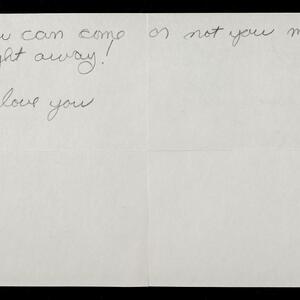 u can come or not you m
ght away!
love you